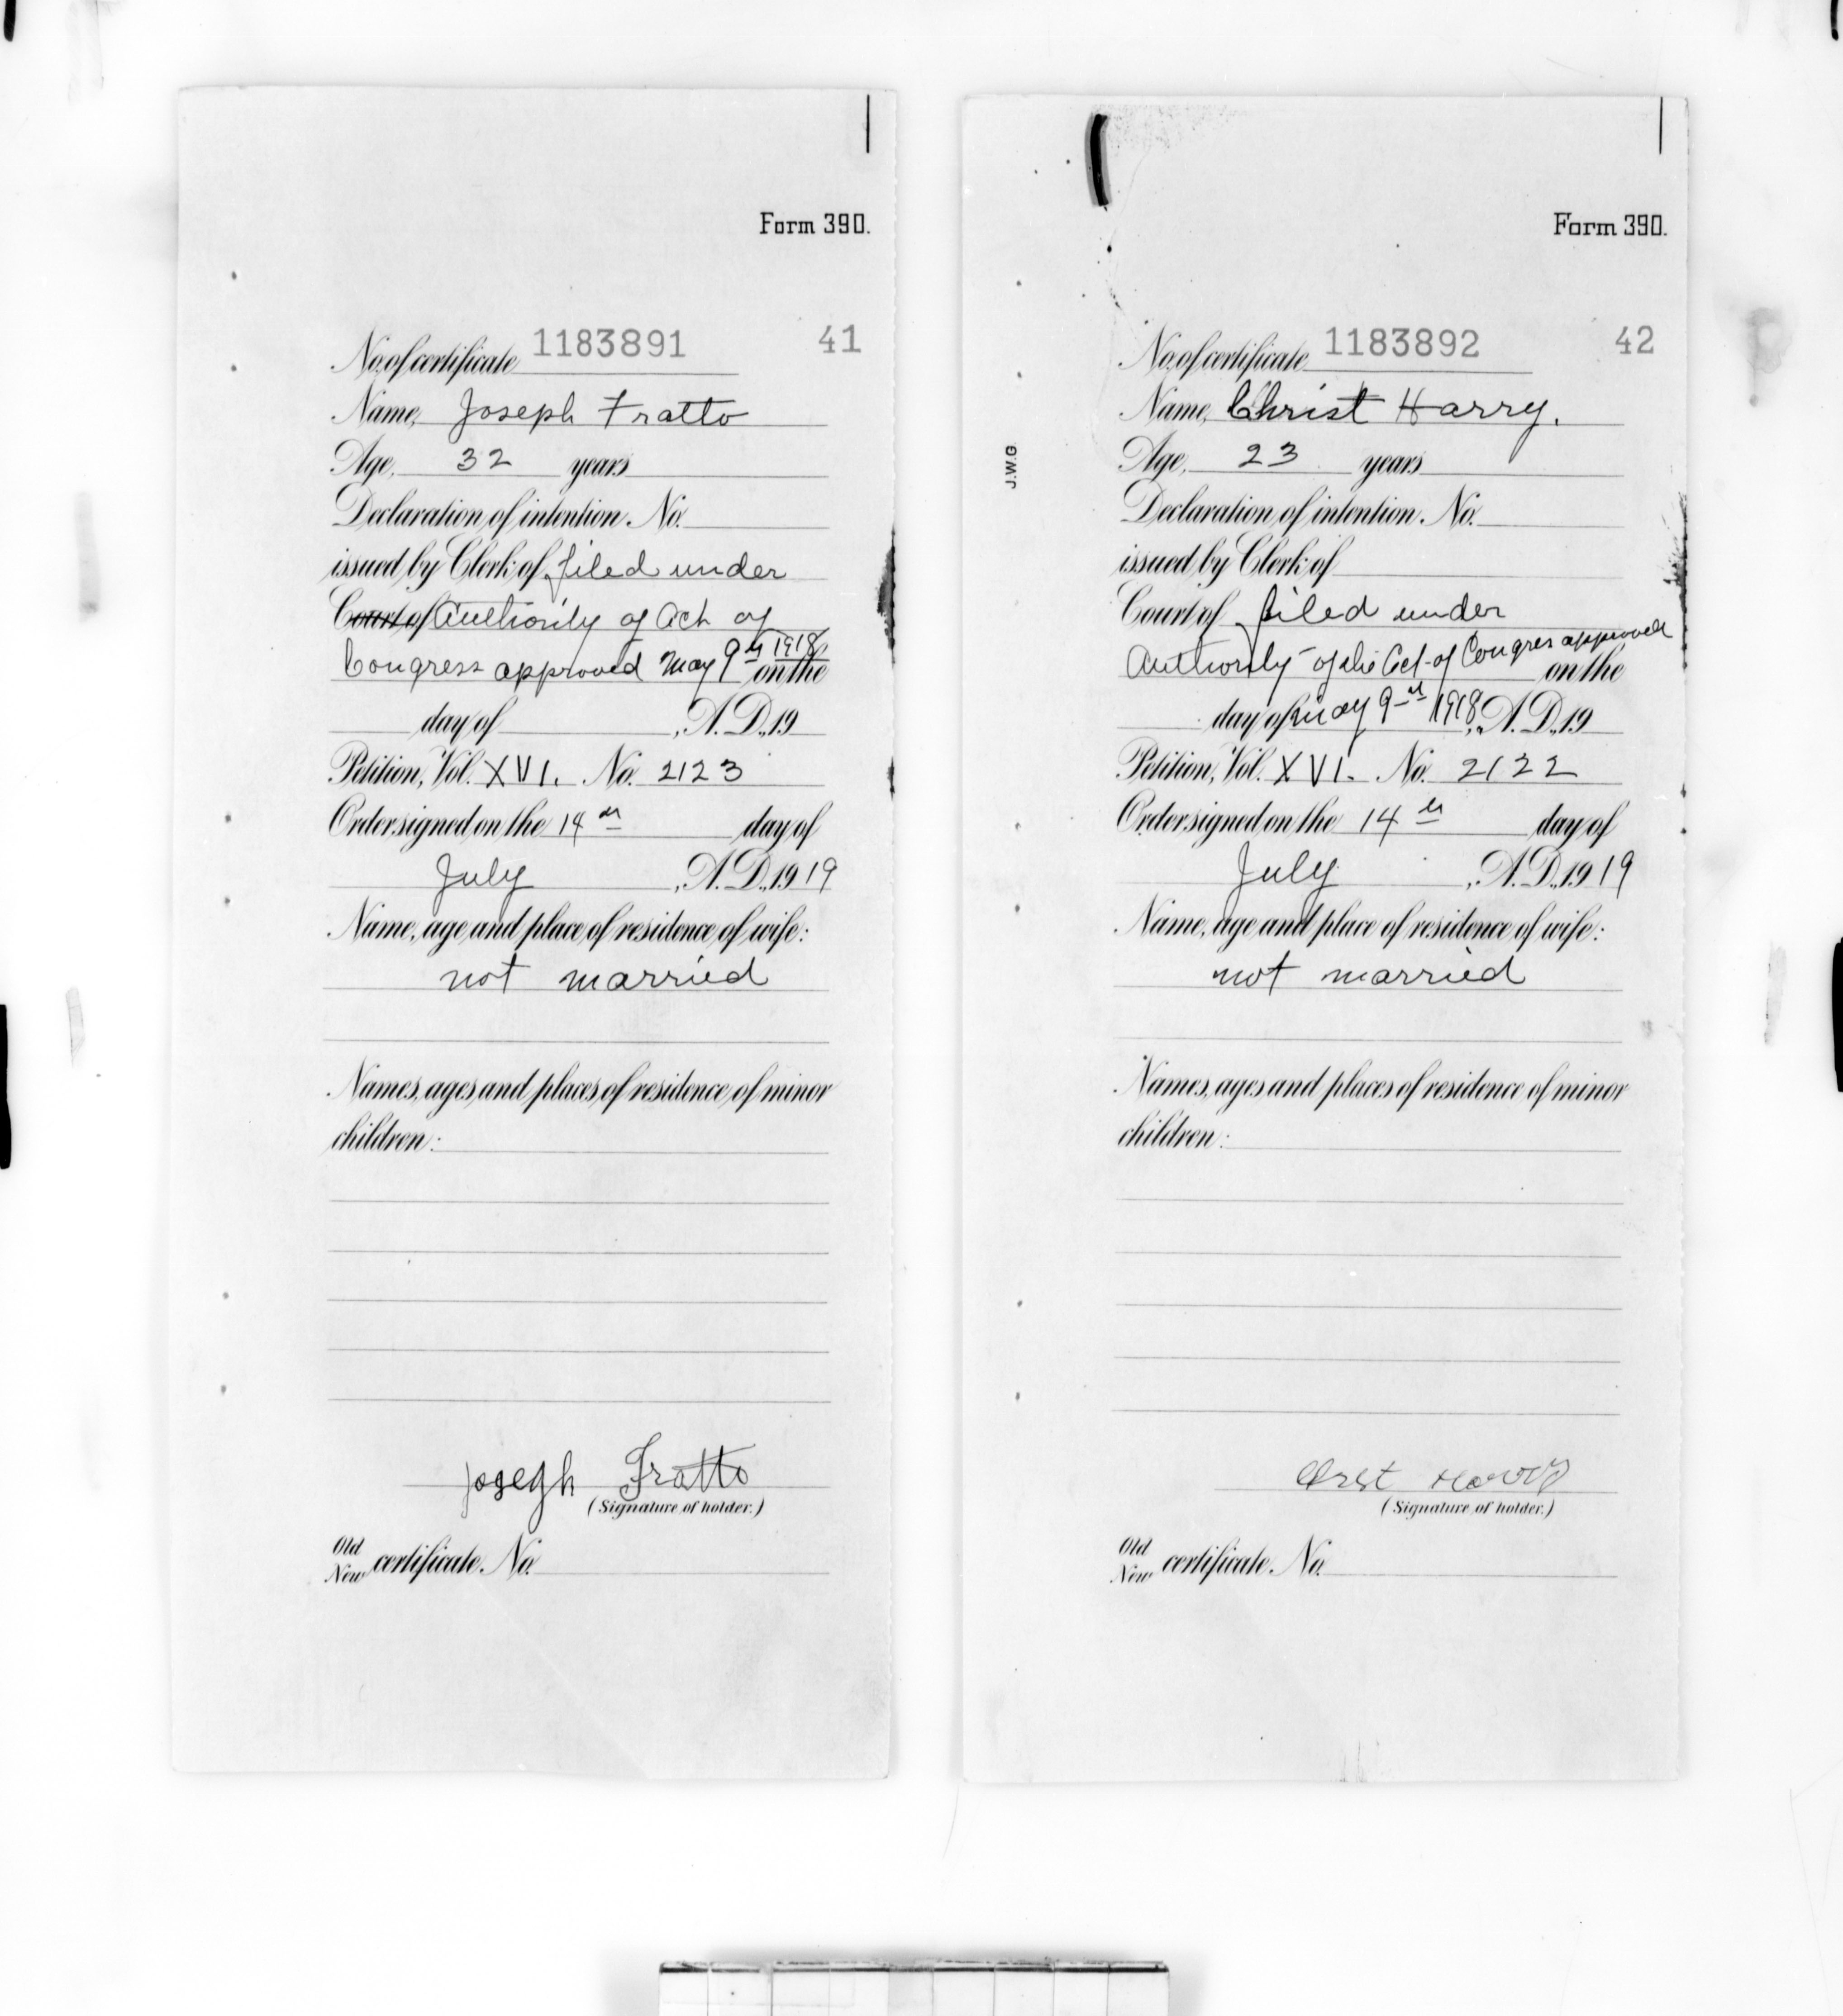 Form 390.
No. of certificate 1183891 41
Name, Joseph Fratto
Age, 32 years
Declaration of intention, No.
issued by Clerk of filed under
Court of Authority of Act of
Congress approved May 9th 1918 on the
day of , A. D., 19
Petition, Vol. XVI. No. 2123
Order signed on the 14th day of
July , A. D., 1919
Name, age and place of residence of wife:
not married
Names, ages and places of residence of minor
children:
Joseph Fratto
(Signature of holder.)
Old
New certificate, No.
Form 390.
No. of certificate 1183892 42
J.W.G.
Name, Christ Harry.
Age, 23 years
Declaration of intention, No.
issued by Clerk of
Court of filed under
Authority of the Act of Congres approved on the
day of May 9th 1918, A. D., 19
Petition, Vol. XVI. No. 2122
Order signed on the 14th day of
July , A. D., 1919
Name, age and place of residence of wife:
not married
Names, ages and places of residence of minor
children:
(Signature of holder.)
Old
New certificate, No.